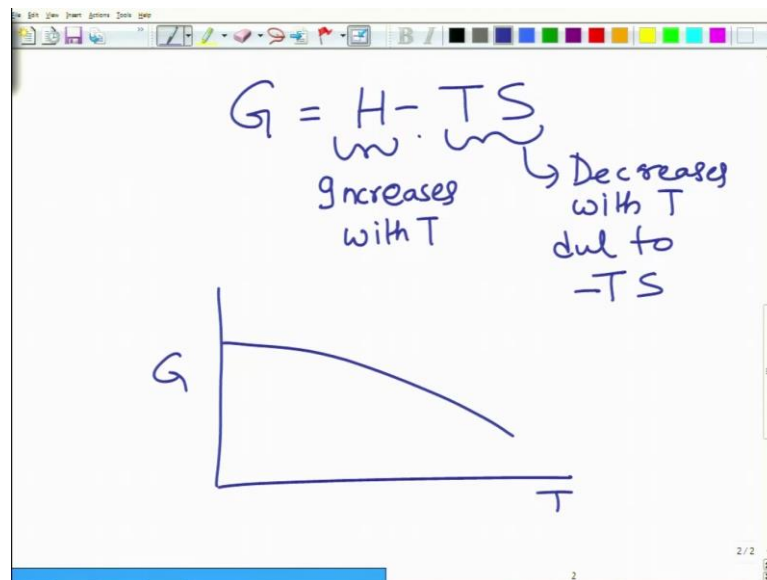 File Edit View Insert Actions Tools Help
B I
G = H - TS
Increases
with T
Decreases
with T
dul to
-TS
G
T
2/2
2